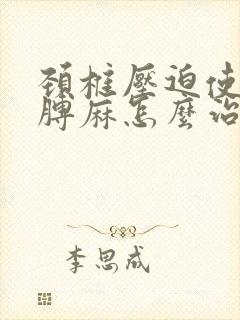 頚椎壓迫使
脾麻怎麼治
李思成